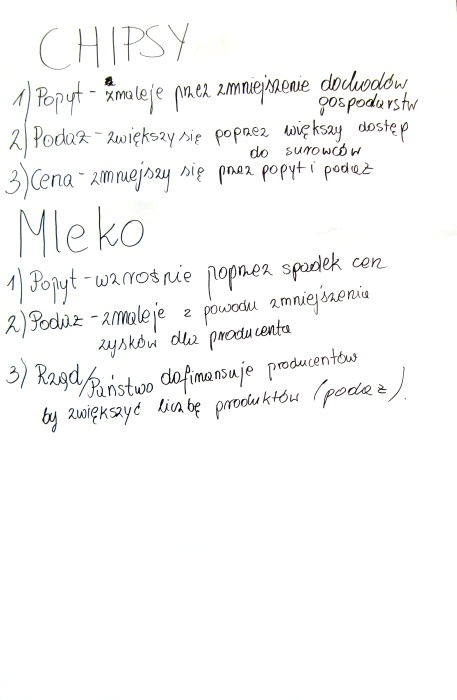 CHIPSY
1) Popyt - zmaleje przez zmniejszenie dochodów
gospodarstw
2) Podaż - zwiększy się poprzez większy dostęp
do surowców
3) Cena - zmniejszy się przez popyt i podaż
Mleko
1) Popyt - wzrośnie poprzez spadek cen
2) Podaż - zmaleje z powodu zmniejszenia
zysków dla producenta
3) Rząd/Państwo dofinansuje producentów
by zwiększyć liczbę produktów (podaż).